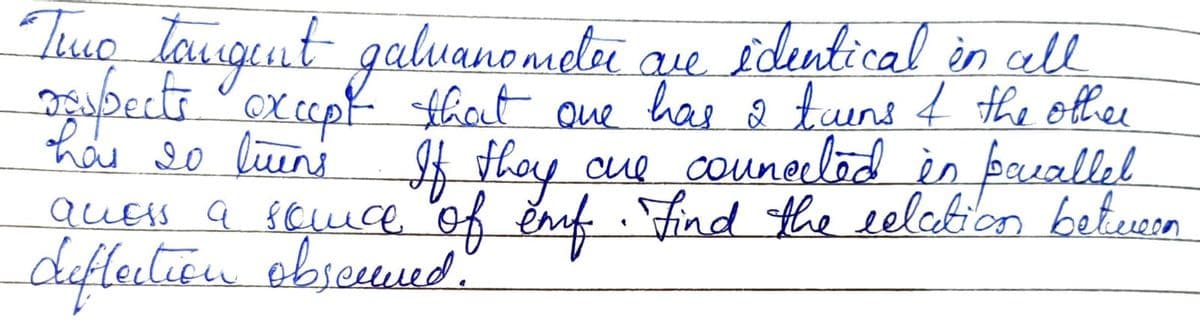 "Two tangent galvanometer are identical in all
respects except that one has 2 turns & the other
has 20 turns If they are connected in parallel
across a source of emf. Find the relation between
deflection observed.